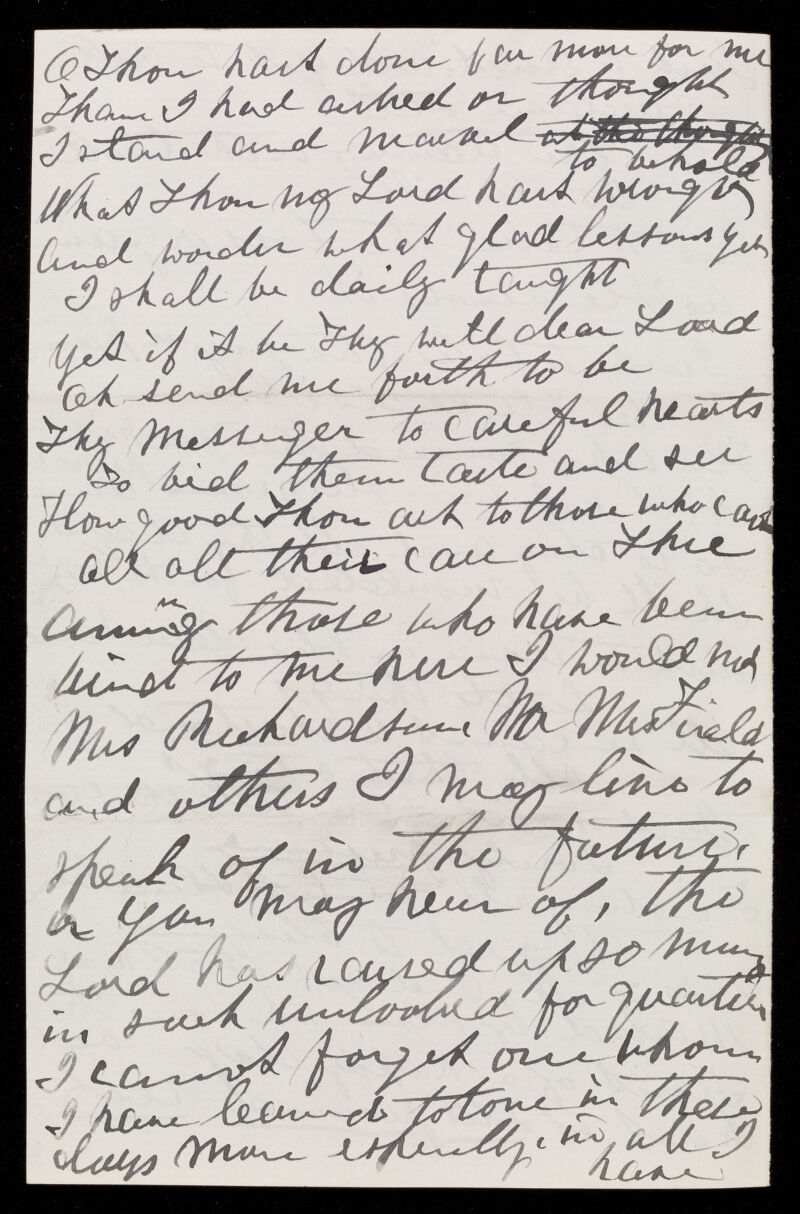 O Thou hast done far more for me
Than I had asked or thought
I stand and marvel at the thought
to behold
What Thou my Lord hast wrought
And wonder what glad lessons yet
I shall be daily taught
Yet if it be Thy will dear Lord
Oh send me forth to be
Thy Messenger to careful hearts
To bid them taste and see
How good Thou art to those who cast
all all their care on Thee
among those who have been
kind to me here I would not
Mrs Richardson Mr Mrs Field
and others I may live to
speak of in the future,
or you may hear of, the
Lord has raised up so many
in such unlooked for quarters
I cannot forget one whom
I have learned to love in these
days more especially, in all I
have